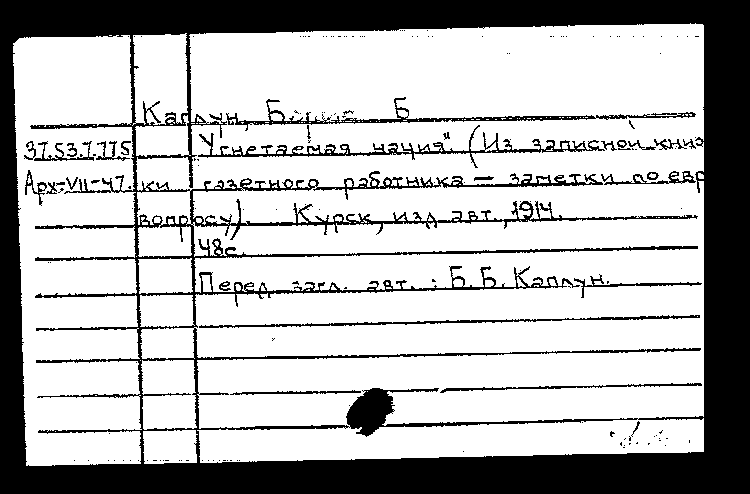 Каплун, Борис Б
37.53.7.775 Угнетаемая нация". (Из записной книж
Арх-VII-47. ки газетного работника — заметки по евр
вопросу). Курск, изд. авт., 1914.
48с.
Перед загл. авт. : Б. Б. Каплун.